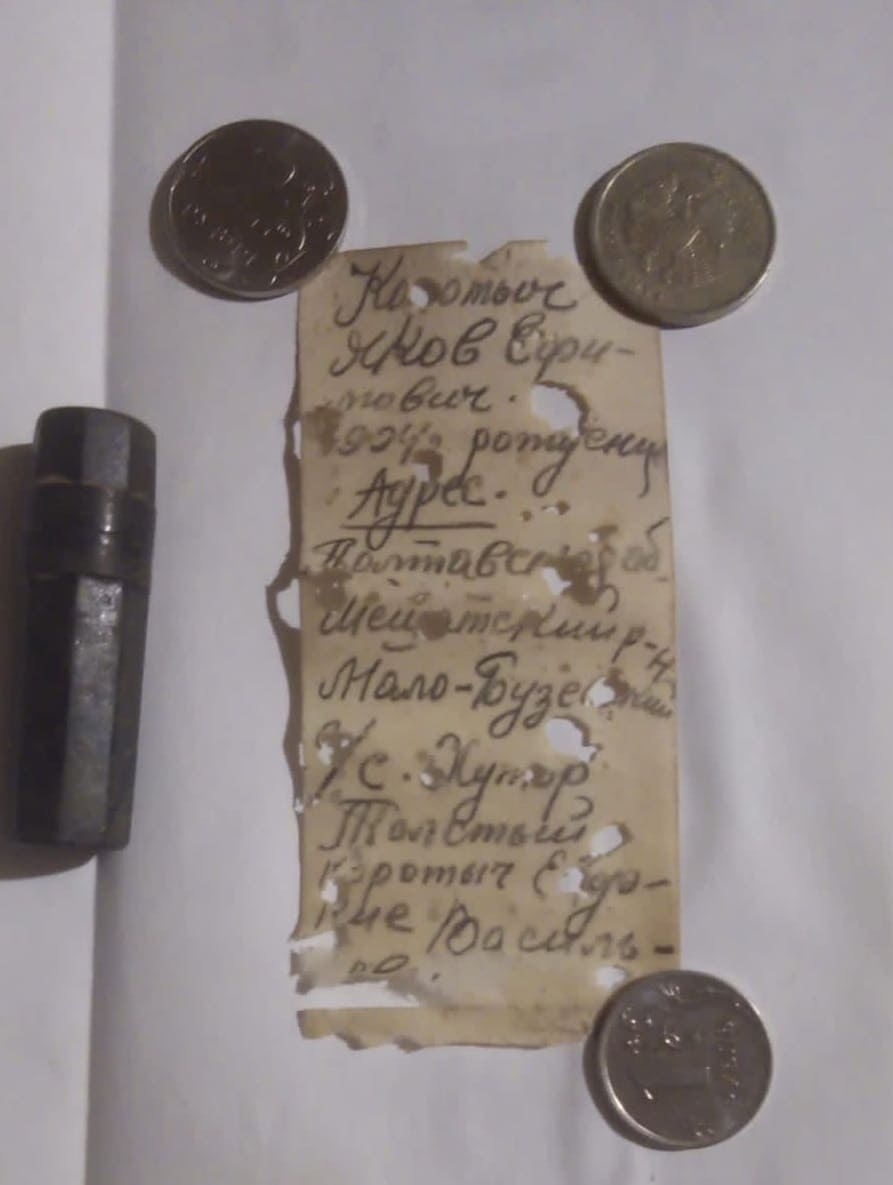 Коротыч
Яков Ефи-
мович.
1924г. рождения
Адрес.
Полтавской об.
р-н
Мало-Бузе
с. Хутор
Толстый
Коротыч Евдо-
кие Василь-